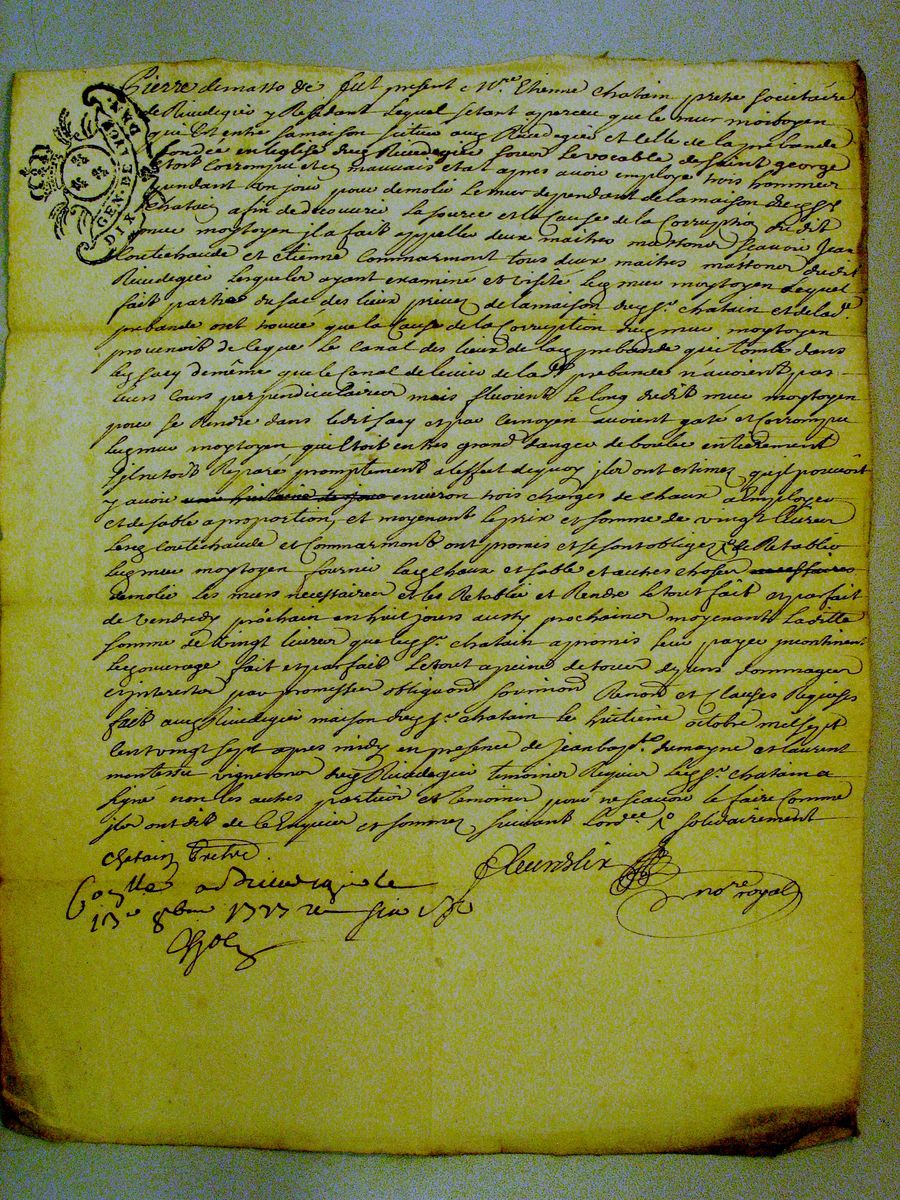 GEN. DE LYON
DIX DEN
Pierre demasso &c fut présent Mre Etienne Chatain prêtre Societaire
de Rivedegier y Residant Lequel setant apperceu que le mur moitoyen
qui Est entre samaison scitue aud Rivedegier et celle de la prebande
fondée en leglise dud Rivedegier sous le vocable de saint george
Etoit corrompu et en mauvais etat apres avoir employé trois hommes
pendant un jour pour demolir le mur dependant de lamaison dud sr
Chatain afin de decouvrir la source et la Cause de la Corruption du dit
mur moytoyen jl a fait appeller deux maitres massons scavoir Jean
Coutechaude et etienne Commarmont tous deux maitres massons dudit
Rivedegier Lesquels ayant examiné et visité led mur moytoyen Lequel
fait partie du sac des lieux privez de lamaison dud sr chatain et de lad
prebande ont trouvé que la Cause de la Corruption dud mur moytoyen
provenoit de ce que le canal des lieux de lad prebande qui tombe dans
led sacq de même que le Canal de levier de lad prebande n'avoient pas
leurs Cours perpendiculaires mais fluoient le long dudit mur moytoyen
pour se Rendre dans ledit sacq et par cemoyen avoient gaté et corrompu
led mur moytoyen qui Etoit en tres grand danger de bouler entierement
s'jl netoit Reparé promptement a leffet dequoy jls ont estimez qu'jl pouvoit
y avoir une huitaine de jours environ trois charges de chaux a Employer
et de sable a proportion, et moyenant le prix et somme de vingt livres
Lesd Coutechaude et Commarmont ont promis et se sont obligez de Retablir
led mur moytoyen fournir lad chaux et sable et autres choses necessaires
demolir les murs necessaires et les Retablir et Rendre le tout fait et parfait
de vendredy prochain en huit jours aussy prochains moyenant ladite
somme de vingt livres que led sr chatain a promis leur payer incontinent
led ouvrage fait et parfait le tout a peine de tous depens dommages
et interests par promesses obligaons soumions Renons et Clauses Requises
fait aud Rivedegier maison dud sr chatain le huitieme octobre mil sept
cent vingt sept apres midy en presence de jean bapte demayne et laurent
montessu vignerons dud Rivedegier temoins Requis led sr chatain a
signé non les autres parties et temoins pour ne scavoir le faire Comme
jls ont dit de ce Enquis et sommez suivant l'ordce solidairement
Chatain Prêtre
not. royal
Conllé a Rivedegier le
8bre 1727 reçu six s